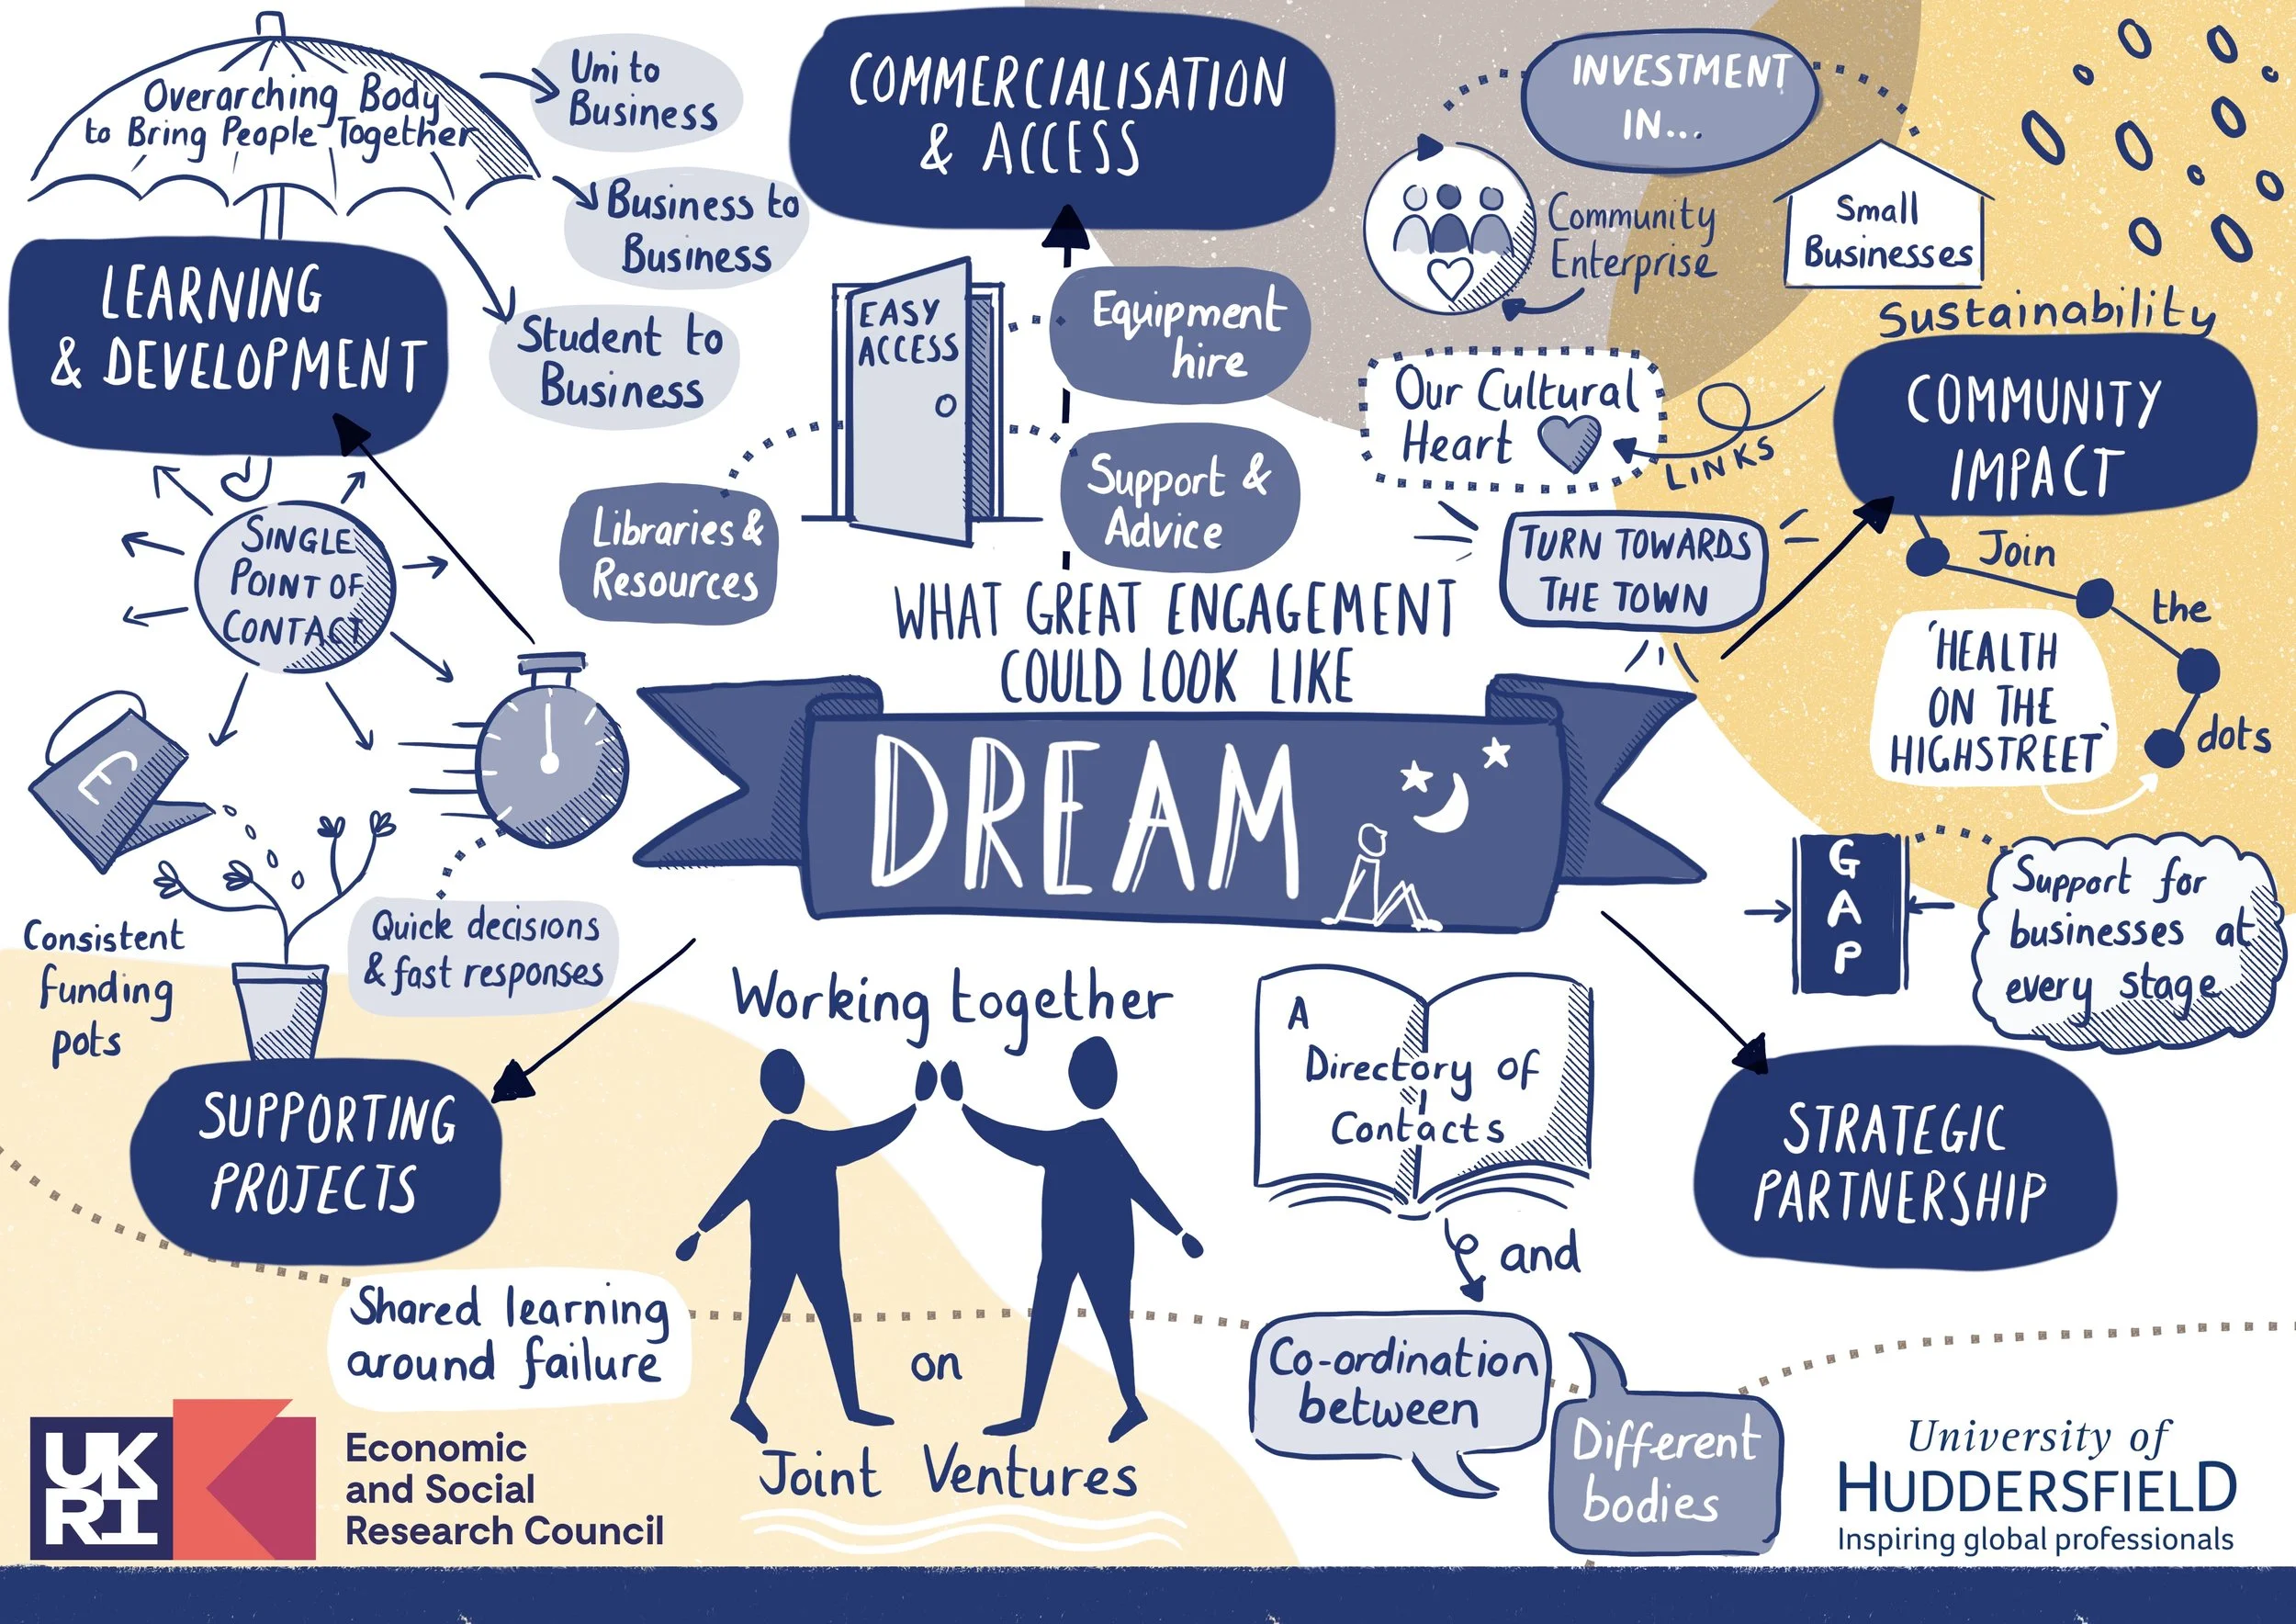 Overarching Body
to Bring People Together
Uni to
Business
Business to
Business
Student to
Business
LEARNING
& DEVELOPMENT
SINGLE
POINT OF
CONTACT
COMMERCIALISATION
& ACCESS
EASY
ACCESS
Equipment
hire
Support &
Advice
Libraries &
Resources
INVESTMENT
IN...
Community
Enterprise
Small
Businesses
Sustainability
COMMUNITY
IMPACT
Our Cultural
Heart
LINKS
TURN TOWARDS
THE TOWN
Join
the
dots
'HEALTH
ON THE
HIGHSTREET'
WHAT GREAT ENGAGEMENT
COULD LOOK LIKE
DREAM
£
Consistent
funding
pots
Quick decisions
& fast responses
SUPPORTING
PROJECTS
Shared learning
around failure
Working together
on
Joint Ventures
A
Directory of
Contacts
and
Co-ordination
between
Different
bodies
GAP
Support for
businesses at
every stage
STRATEGIC
PARTNERSHIP
UK
RI
Economic
and Social
Research Council
University of
HUDDERSFIELD
Inspiring global professionals